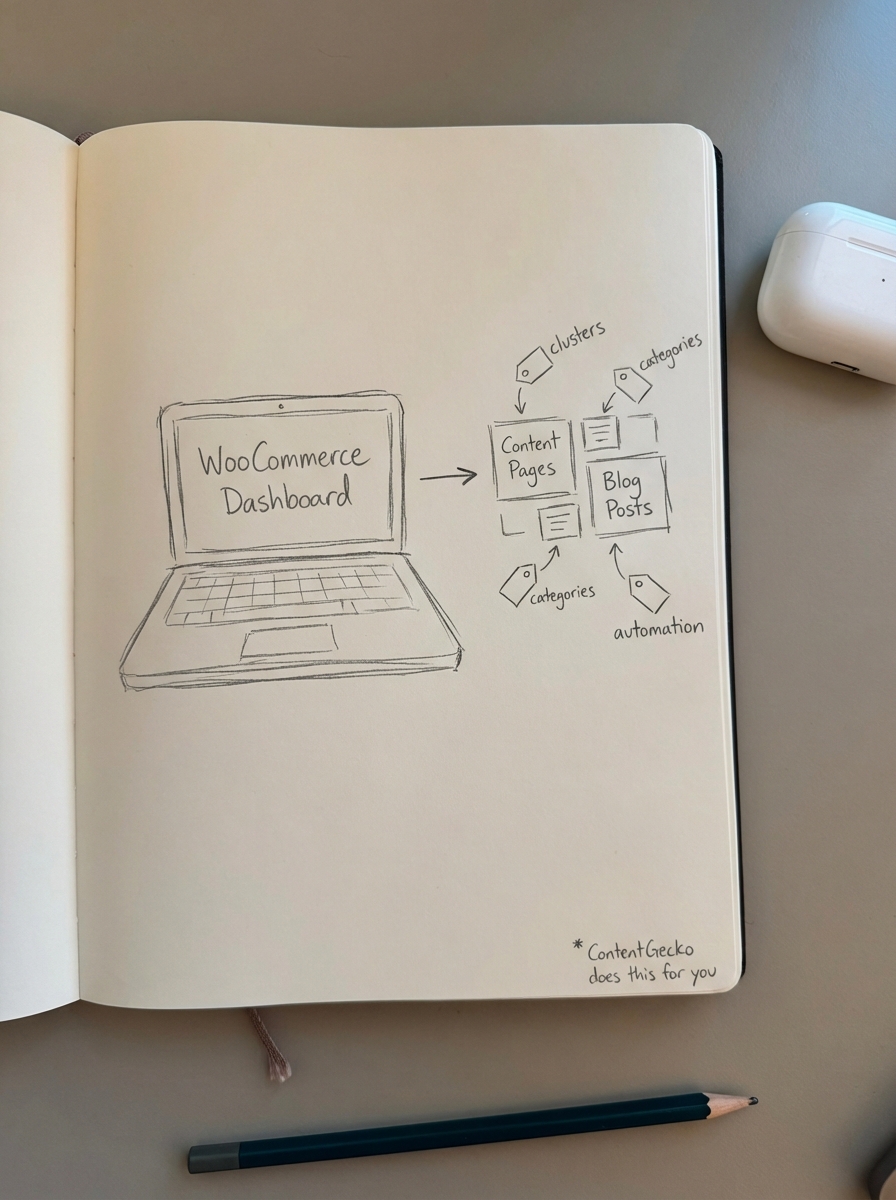 clusters
categories
WooCommerce
Dashboard
Content
Pages
Blog
Posts
categories
automation
* ContentGecko
does this for you